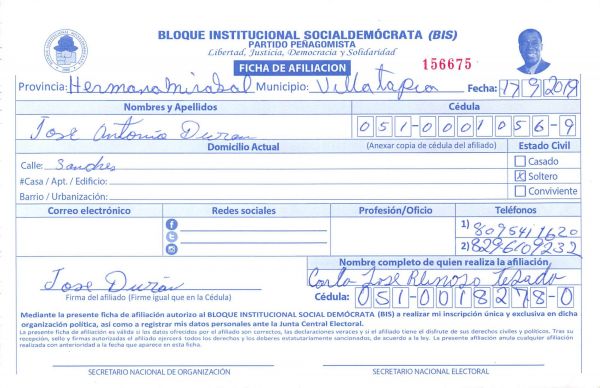 BLOQUE INSTITUCIONAL SOCIALDEMÓCRATA (BIS)
PARTIDO PEÑAGOMISTA
Libertad, Justicia, Democracia y Solidaridad
FICHA DE AFILIACION 156675
Provincia: Hermana Mirabal Municipio: Villa tapia Fecha: 17 9 2019
Nombres y Apellidos Cédula
Jose Antonio Duran 051-0001056-9
Domicilio Actual (Anexar copia de cédula del afiliado) Estado Civil
Calle: Sanches Casado
#Casa / Apt. / Edificio: X Soltero
Barrio / Urbanización: Conviviente
Correo electrónico Redes sociales Profesión/Oficio Teléfonos
1) 8095411620
2) 8296109232
Nombre completo de quien realiza la afiliación
Jose Durán Jose Reinoso
Firma del afiliado (Firme igual que en la Cédula) Cédula: 051-0018278-0
Mediante la presente ficha de afiliación autorizo al BLOQUE INSTITUCIONAL SOCIAL DEMÓCRATA (BIS) a realizar mi inscripción única y exclusiva en dicha
organización política, así como a registrar mis datos personales ante la Junta Central Electoral.
La presente ficha de afiliación es válida si los datos ofrecidos por el afiliado son correctos, las declaraciones veraces y si el afiliado tiene el disfrute de sus derechos civiles y políticos. Tras su
recepción, sello y firmas autorizadas el afiliado ejercerá todos los derechos y los deberes estatutariamente sancionados, de acuerdo a la ley. La presente afiliación anula cualquier afiliación
realizada con anterioridad a la fecha que aparece en esta ficha.
SECRETARIO NACIONAL DE ORGANIZACIÓN SECRETARIO NACIONAL ELECTORAL